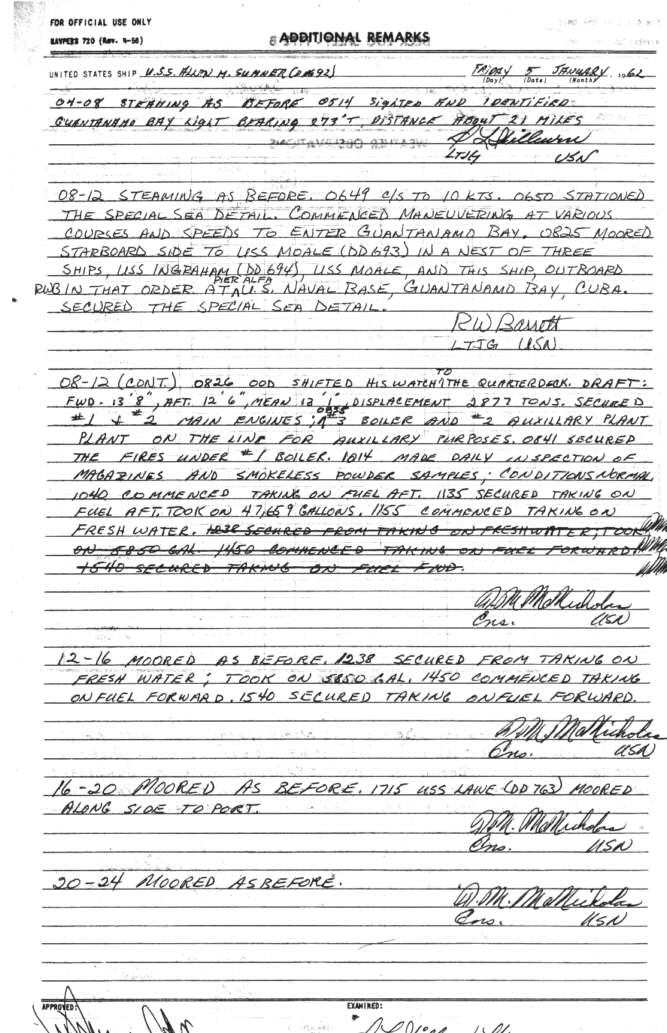 FOR OFFICIAL USE ONLY
NAVPERS 720 (Rev. 4-56)
ADDITIONAL REMARKS
UNITED STATES SHIP U.S.S. ALLEN M. SUMNER (DD692) FRIDAY 5 JANUARY, 1962
(Day) (Date) (Month)
04-08 STEAMING AS BEFORE 0514 SIGHTED AND IDENTIFIED
GUANTANAMO BAY LIGHT BEARING 273°T, DISTANCE ABOUT 21 MILES
LTJG USN
08-12 STEAMING AS BEFORE. 0649 C/S TO 10 KTS. 0650 STATIONED
THE SPECIAL SEA DETAIL. COMMENCED MANEUVERING AT VARIOUS
COURSES AND SPEEDS TO ENTER GUANTANAMO BAY. 0825 MOORED
STARBOARD SIDE TO USS MOALE (DD693) IN A NEST OF THREE
SHIPS, USS INGRAHAM (DD694), USS MOALE, AND THIS SHIP, OUTBOARD
RWB IN THAT ORDER AT PIER ALFA U.S. NAVAL BASE, GUANTANAMO BAY, CUBA.
SECURED THE SPECIAL SEA DETAIL.
RW Barrott
LTJG USN
08-12 (CONT.) 0826 OOD SHIFTED HIS WATCH TO THE QUARTERDECK. DRAFT:
FWD. 13'8", AFT. 12'6", MEAN 13'1", DISPLACEMENT 2877 TONS. SECURED
#1 & #2 MAIN ENGINES; 0835 #3 BOILER AND #2 AUXILLARY PLANT
PLANT ON THE LINE FOR AUXILLARY PURPOSES. 0841 SECURED
THE FIRES UNDER #1 BOILER. 1014 MADE DAILY INSPECTION OF
MAGAZINES AND SMOKELESS POWDER SAMPLES; CONDITIONS NORMAL.
1040 COMMENCED TAKING ON FUEL AFT. 1135 SECURED TAKING ON
FUEL AFT. TOOK ON 47,659 GALLONS. 1155 COMMENCED TAKING ON
FRESH WATER. 1238 SECURED FROM TAKING ON FRESHWATER; TOOK
ON 5850 GAL. 1450 COMMENCED TAKING ON FUEL FORWARD.
1540 SECURED TAKING ON FUEL FWD.
D.M. McNicholas
Ens. USN
12-16 MOORED AS BEFORE. 1238 SECURED FROM TAKING ON
FRESH WATER; TOOK ON 5850 GAL. 1450 COMMENCED TAKING
ON FUEL FORWARD. 1540 SECURED TAKING ON FUEL FORWARD.
D.M. McNicholas
Ens. USN
16-20 MOORED AS BEFORE. 1715 USS LAWE (DD 763) MOORED
ALONG SIDE TO PORT.
D.M. McNicholas
Ens. USN
20-24 MOORED AS BEFORE.
D.M. McNicholas
Ens. USN
APPROVED: EXAMINED: